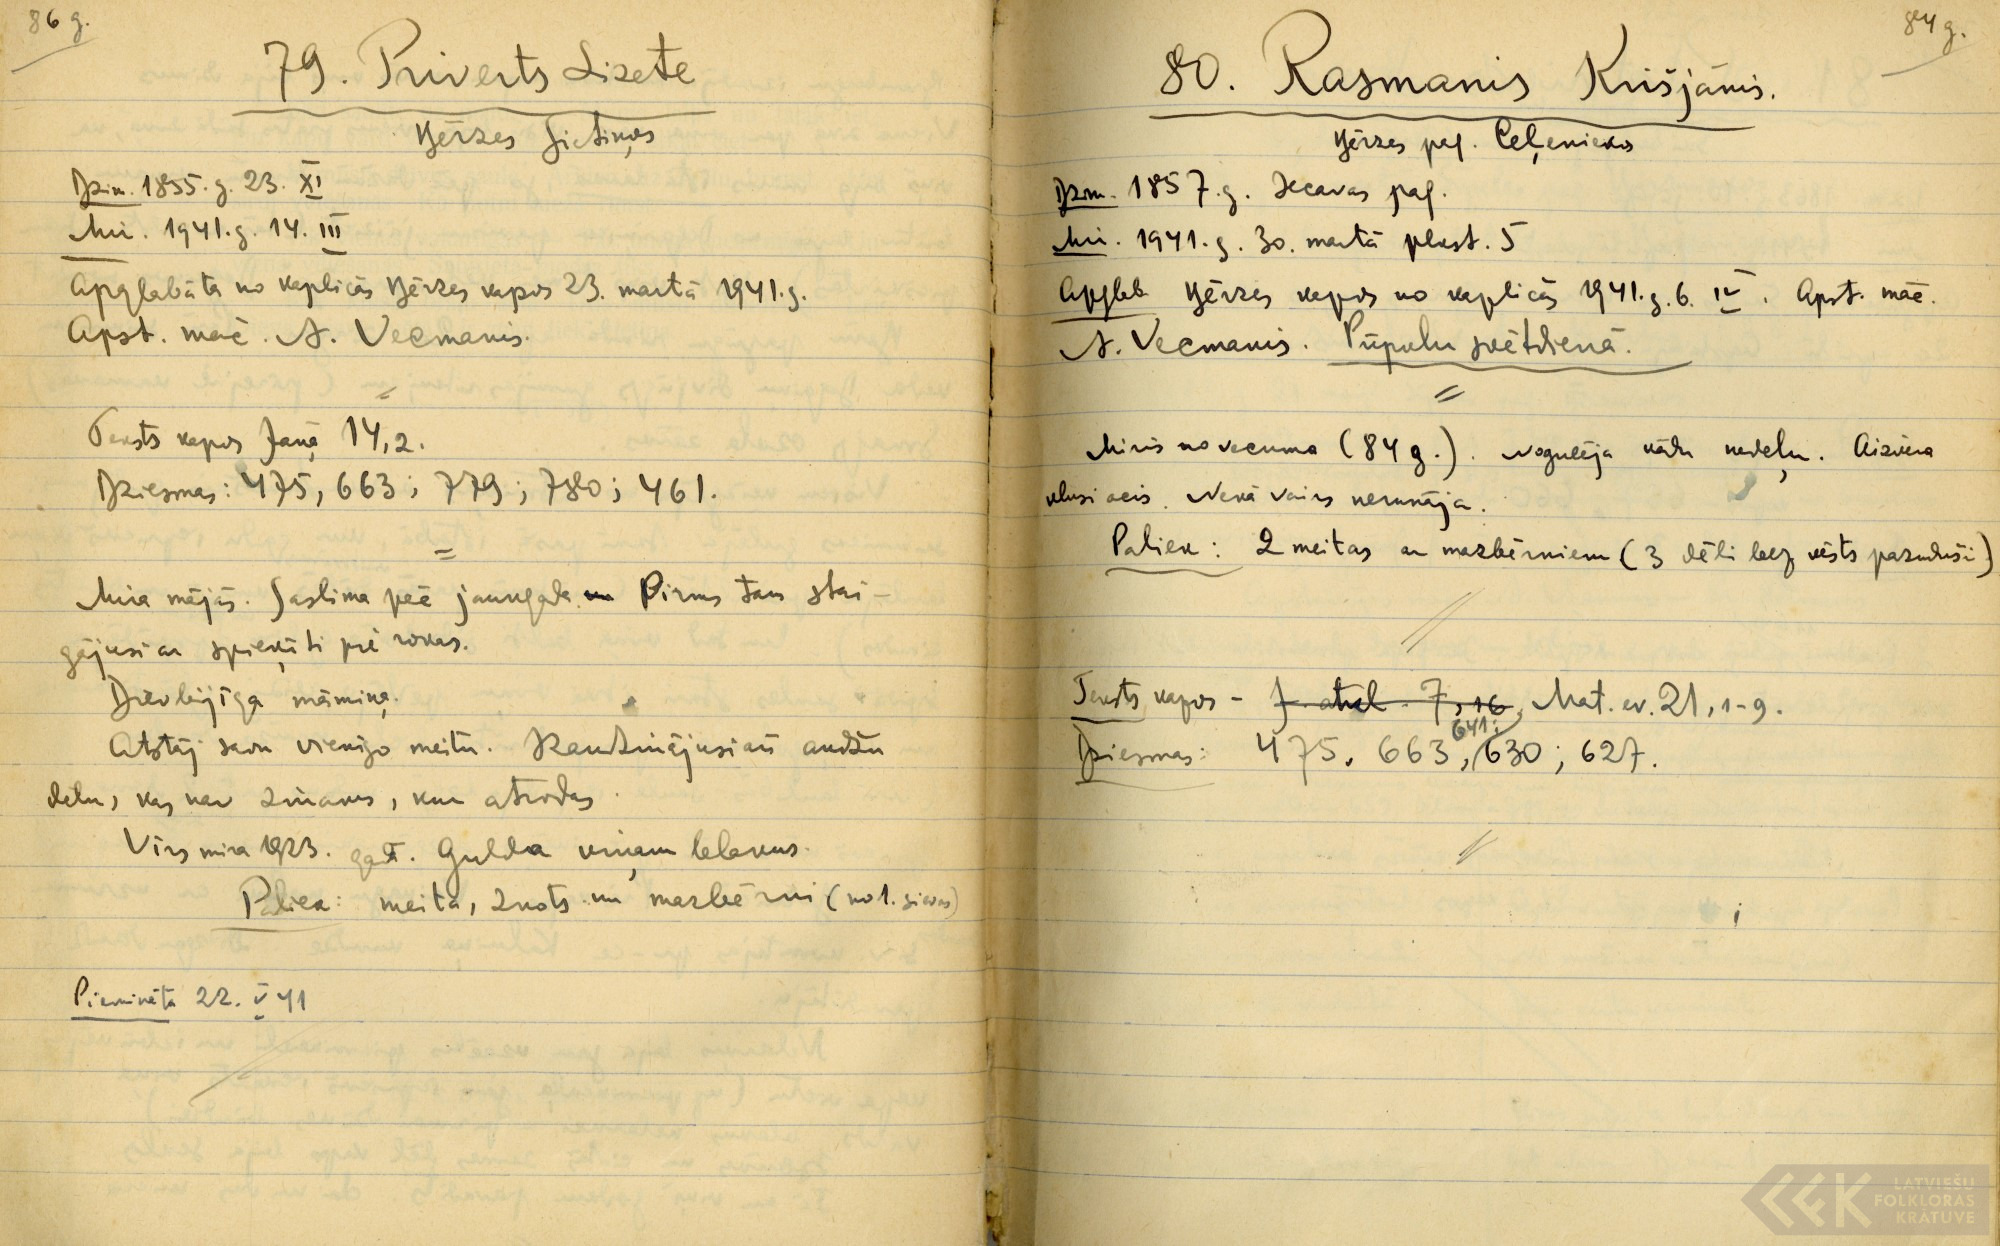 86 g.
79. Priverts Lizete
Bērzes Sietiņos
Dzim. 1855. g. 23. XI
Mir. 1941. g. 14. III
Apglabāta no kapličas Bērzes kapos 23. martā 1941. g.
Apst. māc. A. Vecmanis.
Teksts kapos Jaņa 14,2.
Dziesmas: 475, 663; 779; 780; 461.
Mira mājās. Saslima pēc jaungada. Pirms tam stai-
gājusi ar spieķīti pie rokas.
Dievbijīga māmiņa.
Atstāj savu vienīgo meitu. Izaudzinājusi arī audžu
dēlu, kas nav zināms, kur atrodas.
Vīrs mira 1923. gadā. Gulda viņam blakus.
Paliek: meita, znots un mazbērni (no 1. sievas)
Pieminēta 22. V 41
84 g.
80. Rasmanis Krišjānis.
Bērzes pag. Ceļenieks
Dzim. 1857. g. Iecavas pag.
Mir. 1941. g. 30. martā plkst. 5
Apglab. Bērzes kapos no kapličas 1941. g. 6. IV. Apst. māc.
A. Vecmanis. Pūpolu svētdienā.
Miris no vecuma (84 g.). Nogulēja kādu nedēļu. Aizvēra
klusi acis. Nekā vairs nerunāja.
Paliek: 2 meitas ar mazbērniem (3 dēli bez vēsts pazuduši)
Teksts kapos - J. atkl. 7, 16, Mat. ev. 21, 1-9.
641;
Dziesmas: 475, 663, 630; 627.
LATVIEŠU
FOLKLORAS
KRĀTUVE